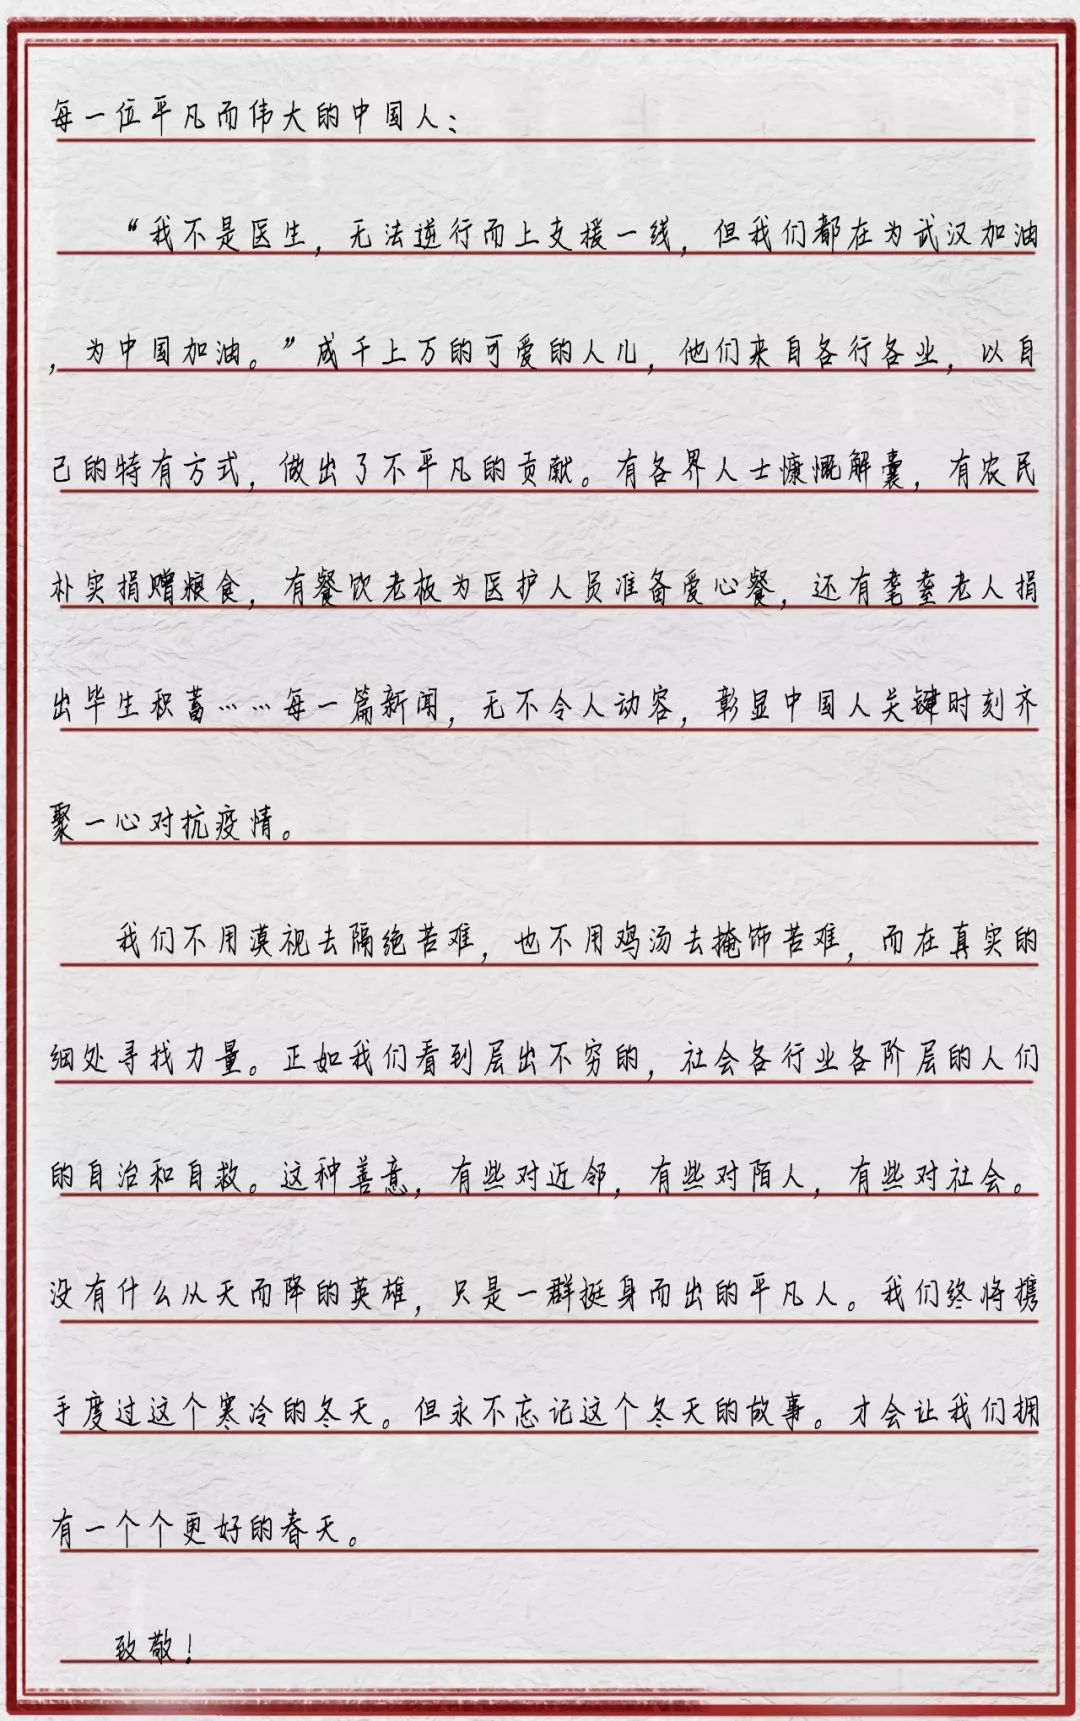 每一位平凡而伟大的中国人：
“我不是医生，无法逆行而上支援一线，但我们都在为武汉加油
，为中国加油。”成千上万的可爱的人儿，他们来自各行各业，以自
己的特有方式，做出了不平凡的贡献。有各界人士慷慨解囊，有农民
朴实捐赠粮食，有餐饮老板为医护人员准备爱心餐，还有耄耋老人捐
出毕生积蓄……每一篇新闻，无不令人动容，彰显中国人关键时刻齐
聚一心对抗疫情。
我们不用漠视去隔绝苦难，也不用鸡汤去掩饰苦难，而在真实的
细处寻找力量。正如我们看到层出不穷的，社会各行业各阶层的人们
的自治和自救。这种善意，有些对近邻，有些对陌人，有些对社会。
没有什么从天而降的英雄，只是一群挺身而出的平凡人。我们终将携
手度过这个寒冷的冬天。但永不忘记这个冬天的故事。才会让我们拥
有一个个更好的春天。
致敬！